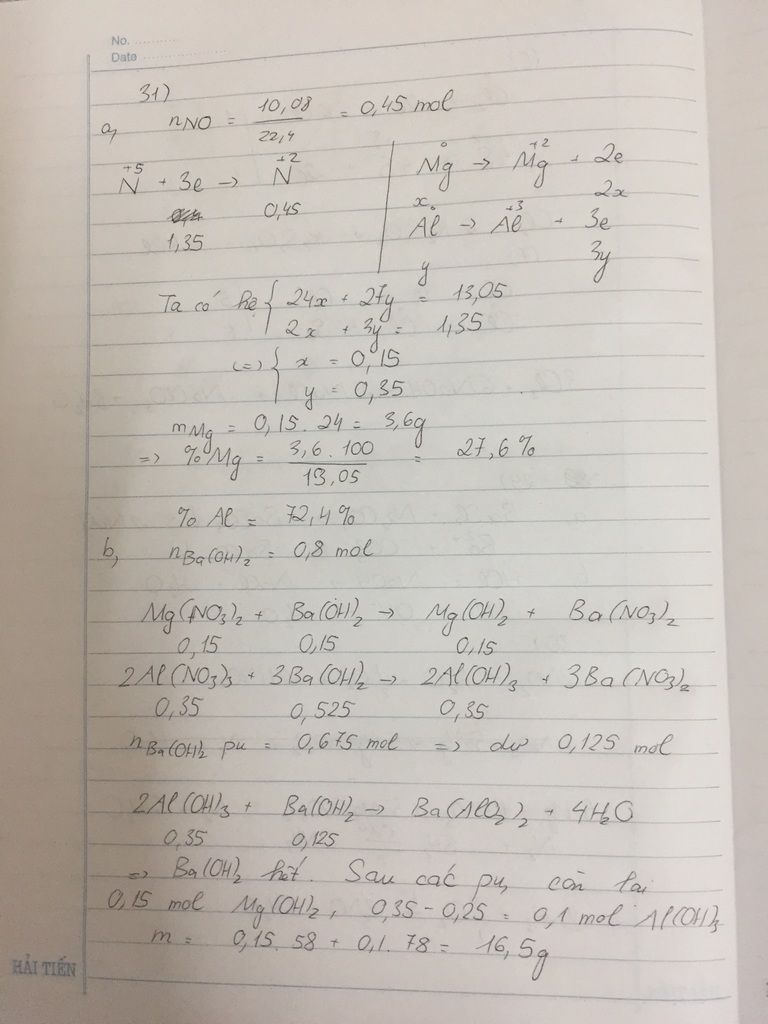 No. ............
Date ........................
31)
a, nNO = 10,08 / 22,4 = 0,45 mol
N⁺⁵ + 3e → N⁺²
1,35 0,45
Mg⁰ → Mg⁺² + 2e
x 2x
Al⁰ → Al⁺³ + 3e
y 3y
Ta có hệ { 24x + 27y = 13,05
2x + 3y = 1,35
(=) { x = 0,15
y = 0,35
mMg = 0,15 . 24 = 3,6g
=> % Mg = 3,6 . 100 / 13,05 = 27,6 %
% Al = 72,4 %
b, nBa(OH)₂ = 0,8 mol
Mg(NO₃)₂ + Ba(OH)₂ → Mg(OH)₂ + Ba(NO₃)₂
0,15 0,15 0,15
2Al(NO₃)₃ + 3Ba(OH)₂ → 2Al(OH)₃ + 3Ba(NO₃)₂
0,35 0,525 0,35
nBa(OH)₂ pư = 0,675 mol => dư 0,125 mol
2Al(OH)₃ + Ba(OH)₂ → Ba(AlO₂)₂ + 4H₂O
0,35 0,125
=> Ba(OH)₂ hết. Sau các pư, còn lại
0,15 mol Mg(OH)₂, 0,35 - 0,25 = 0,1 mol Al(OH)₃
m = 0,15. 58 + 0,1. 78 = 16,5g
HẢI TIẾN